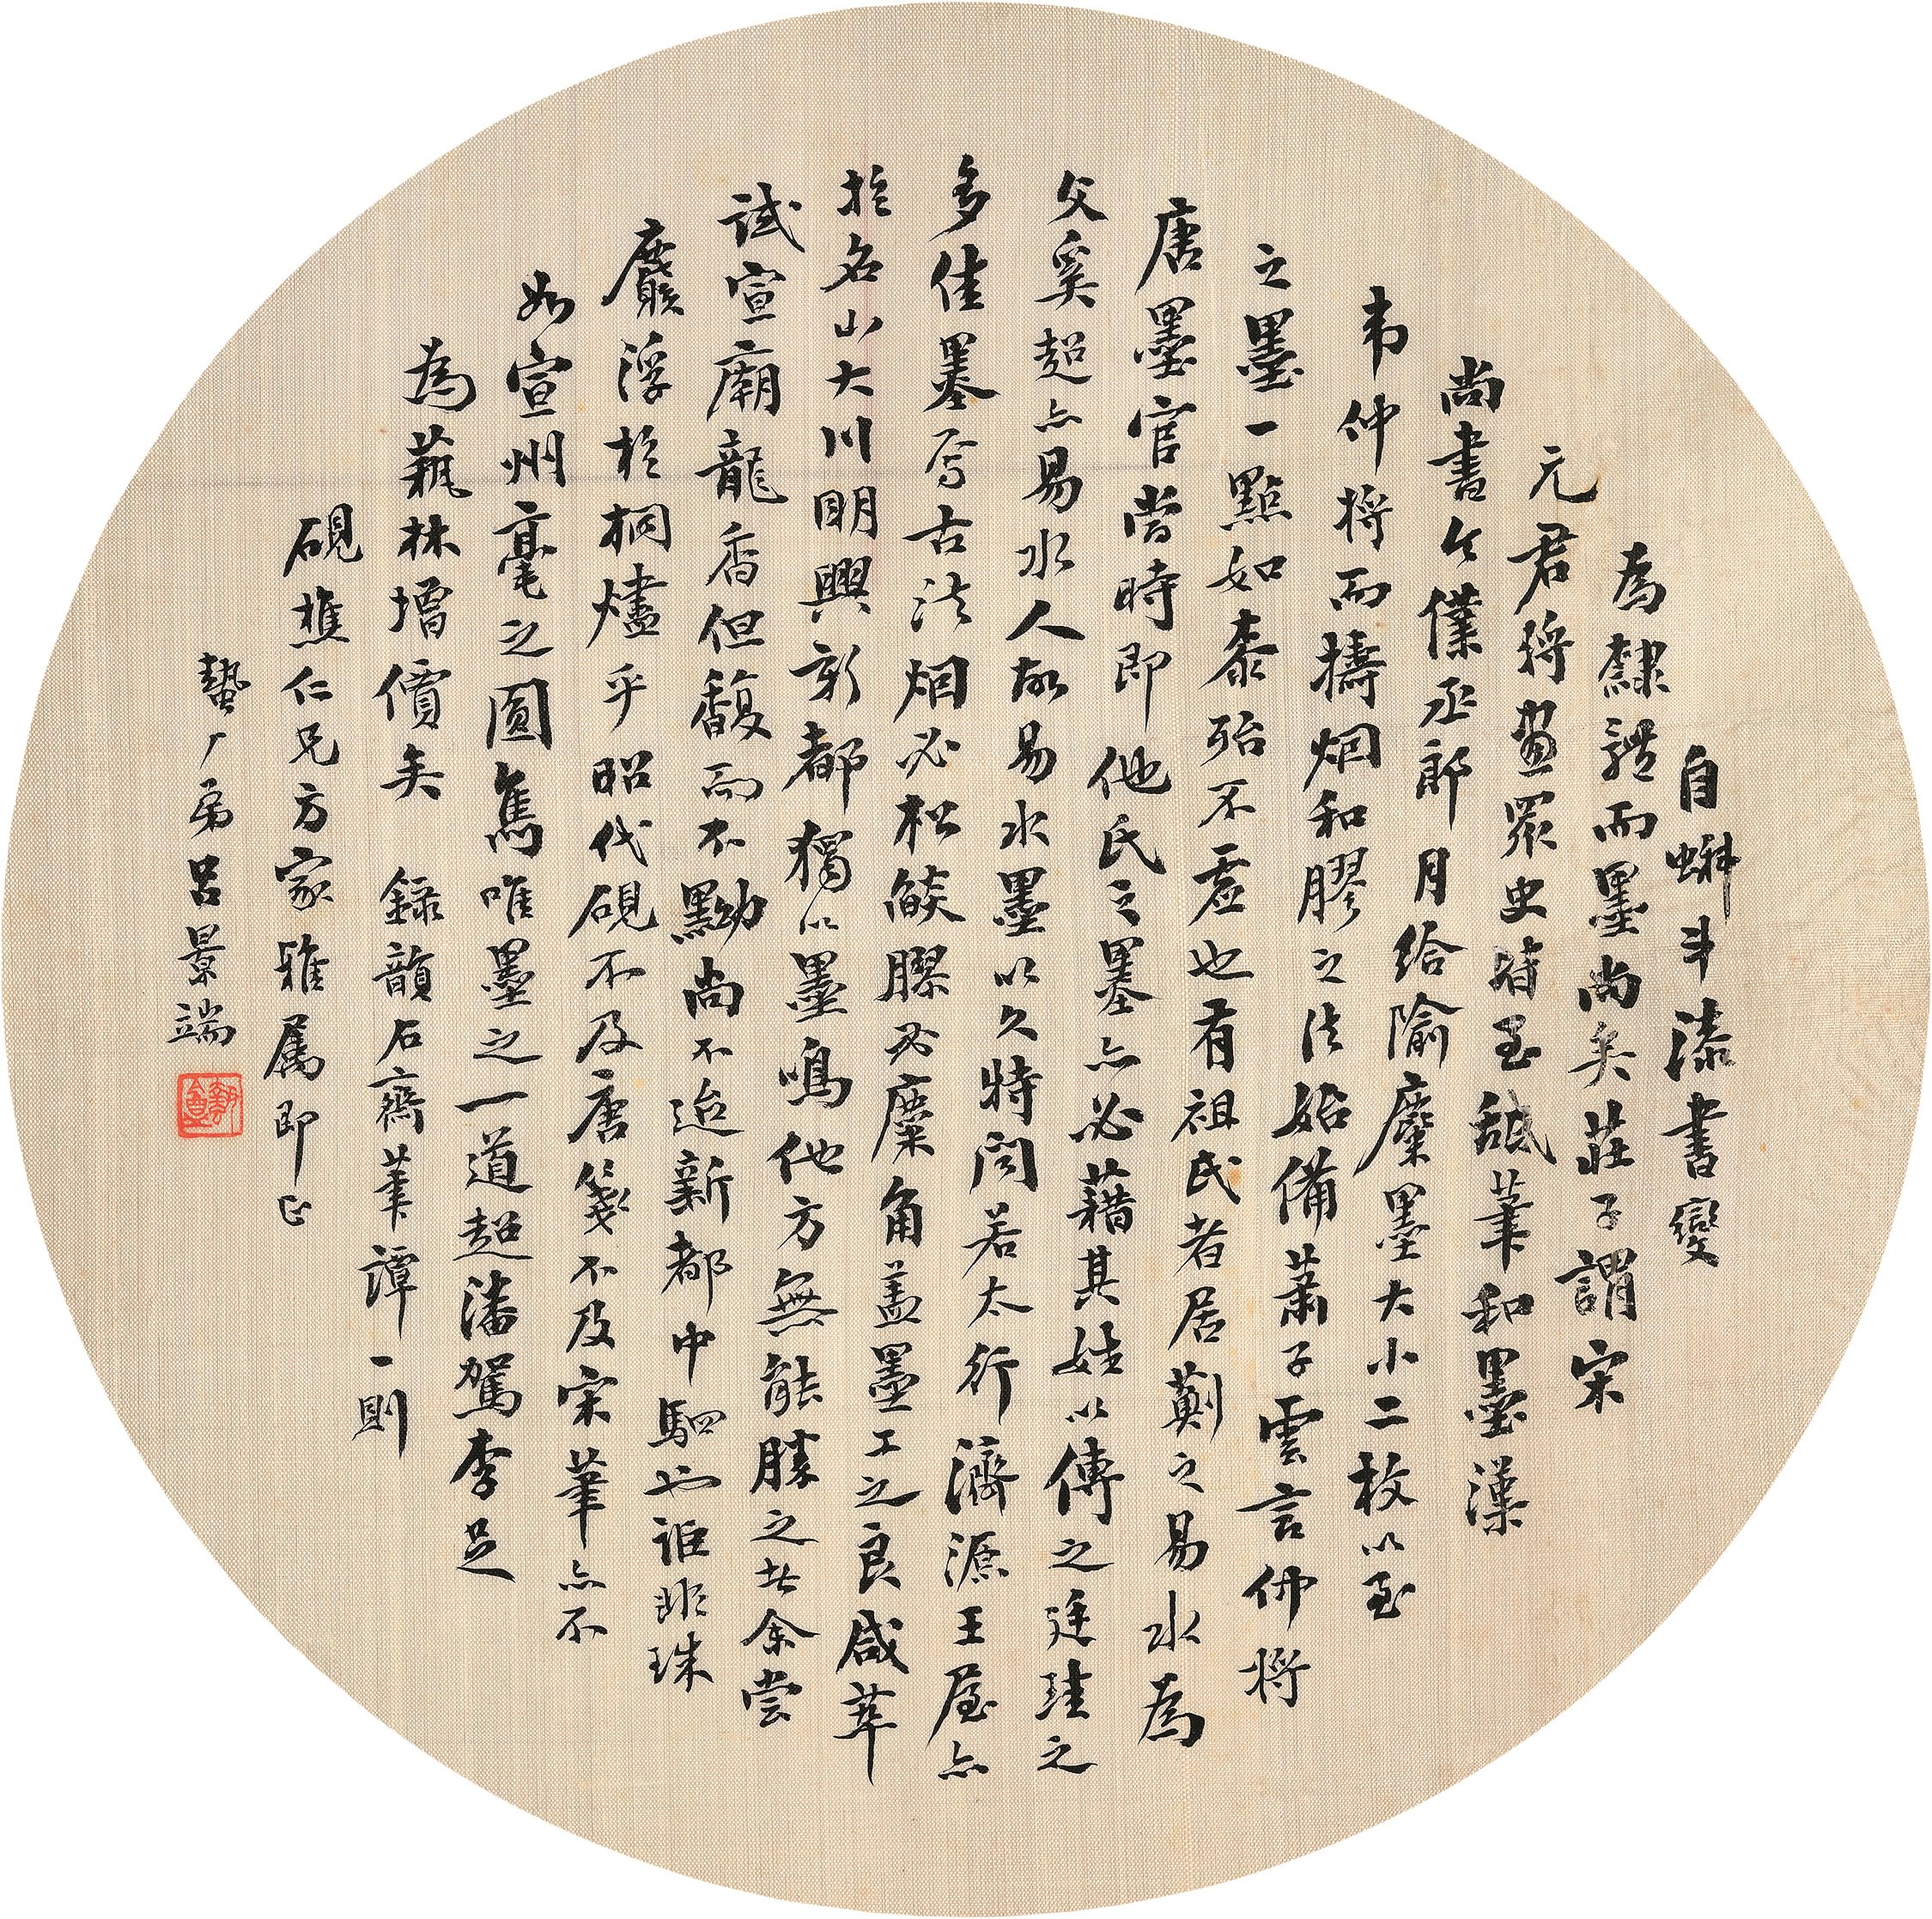 自蝌斗漆書變
為隸體而墨尚矣莊子謂宋
元君將畫眾史皆至舐筆和墨漢
尚書令僕丞郎月給隃麋墨大小二枚以至
韋仲將而擣烟和膠之法始備蕭子雲言仲將
之墨一點如漆殆不虛也有祖氏者居薊之易水為
唐墨官當時即他氏之墨亦必藉其姓以傳之廷珪之
父奚超亦易水人故易水墨以久特聞若太行濟源王屋亦
多佳墨焉古法烟必松燄膠必麋角蓋墨工之良咸萃
於名山大川明興新都獨以墨鳴他方無能勝之者余嘗
試宣廟龍香但馥而不黝尚不迨新都中駟也詎眂珠
麝浮於桐燼乎昭代硯不及唐箋不及宋筆亦不
如宣州毫之圓雋唯墨之一道超潘駕李足
為蓺林增價矣 錄韻石齋筆譚一則
硯樵仁兄方家雅屬即正
蟄厂弟呂景端